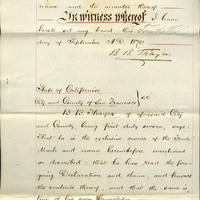 name and the
In witness whereof I have
hereto set my hand this
day of September A.D. 1870
B. B. Thayer
State of California
City and County of San Francisco } s.s.
B. B. Thayer of aforesaid City
and County being first duly sworn, says:
That he is the exclusive owner of the Trade
Mark and name hereinbefore mentioned
or described; that he has read the fore-
going Declaration and claim, and knows
the contents thereof, and that the same is
true of his own